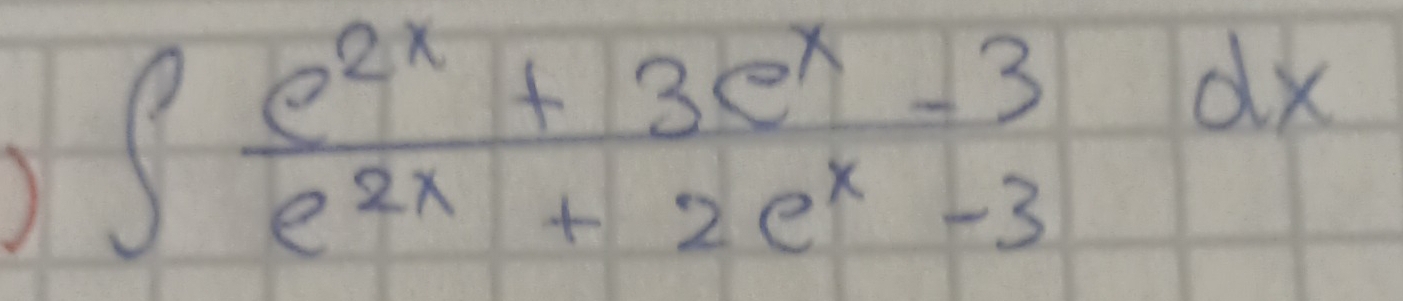 ) ∫ (e^{2x} + 3e^x - 3)/(e^{2x} + 2e^x - 3) dx